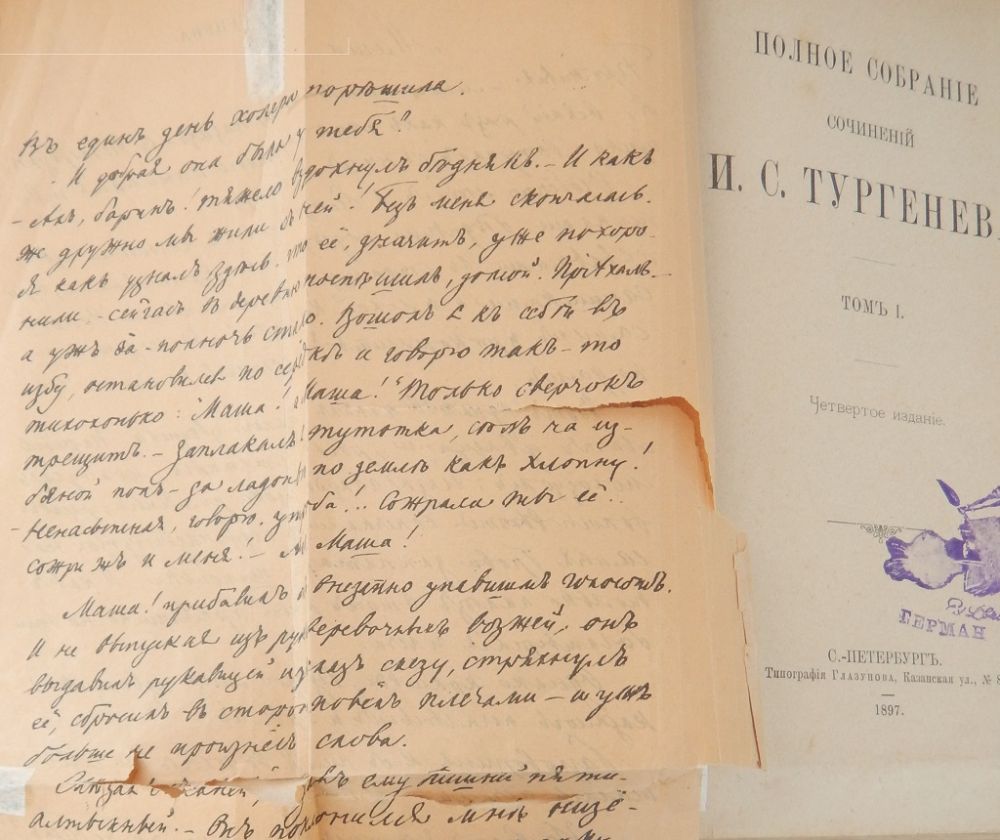 Въ единъ день холера порѣшила.
- И добрая она была у тебя?
- Ахъ, баринъ! тяжело вздохнулъ бѣднякъ. - И какъ
же дружно мы жили съ ней! Безъ меня скончалась.
Я какъ узналъ здѣсь, что её, значитъ, уже похоро-
нили - сейчасъ въ деревню поспѣшилъ, домой. Пріѣхалъ -
а ужъ за-полночь стало. Вошолъ я къ себѣ въ
избу, остановился по середкѣ и говорю такъ-то
тихохонько: "Маша! а Маша!" Только сверчокъ
трещитъ. - Заплакалъ тутотка, сѣлъ на из-
бяной полъ - да ладонью по землѣ какъ хлопну!
- Ненасытная, говорю, утроба!.. Сожрала ты её..
сожри жъ и меня! - Ахъ Маша!
Маша! прибавилъ онъ внезапно упавшимъ голосомъ.
И не выпуская изъ рукъ веревочныхъ возжей, онъ
выдавилъ рукавицей изъ глазъ слезу, стряхнулъ
её, сбросилъ въ сторону повёлъ плечами - и ужъ
больше не произнёсъ слова.
Слѣзая съ саней, ему лишній пяти-
алтынный. - Онъ поклонился мнѣ низё-
ПОЛНОЕ СОБРАНІЕ
СОЧИНЕНІЙ
И. С. ТУРГЕНЕВ
ТОМЪ I.
Четвертое изданіе.
ГЕРМАН
С.-ПЕТЕРБУРГЪ.
Типографія Глазунова, Казанская ул., № 8
1897.